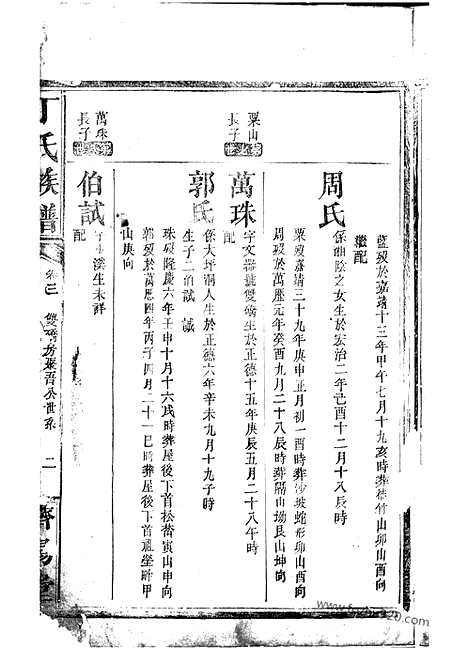 藍歿於嘉靖十三年甲午七月十九亥時葬榛竹山卯山酉向
繼配
周氏
係細陰之女生於宏治二年己酉十二月十八辰時
粟歿嘉靖三十九年庚申正月初一酉時葬沙坡蛇形卯山酉向
周歿於萬曆元年癸酉九月二十八辰時葬隔山坳艮山坤向
粟山
長子
萬珠
字文器號雙磷生於正德十五年庚辰五月二十八午時
配
郭氏
係大坪洞人生於正德六年辛未九月十九子時
生子二伯試 誠
珠歿隆慶六年壬申十月十六戌時葬屋後下首松蒈寅山申向
郭歿於萬曆四年丙子四月二十一巳時葬屋後下首祖塋側甲
山庚向
萬珠
長子
伯試
字 溪生未詳
配
丁氏族譜
卷三
雙 房聚吾公世系
二
濟陽堂